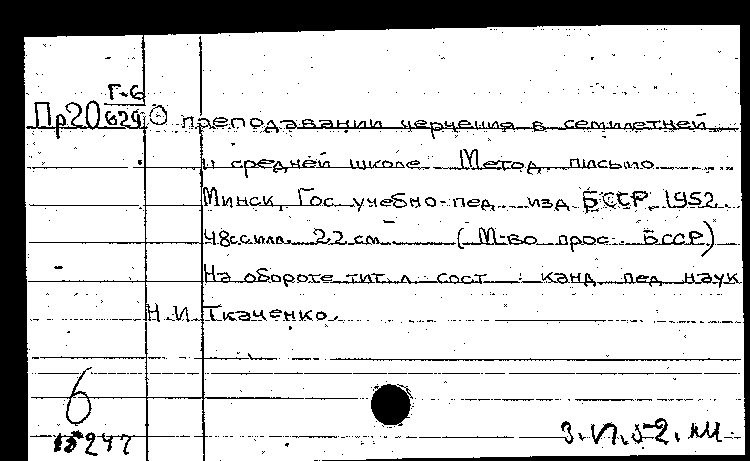 Г-6
Пр20 629 О преподавании черчения в семилетней
и средней школе Метод. письмо
Минск, Гос. учебно-пед. изд БССР, 1952.
48с с илл. 22 см. (М-во прос. БССР)
На обороте тит. л. сост.: канд. пед. наук
Н.И. Ткаченко.
6
15247
3.VI.52.